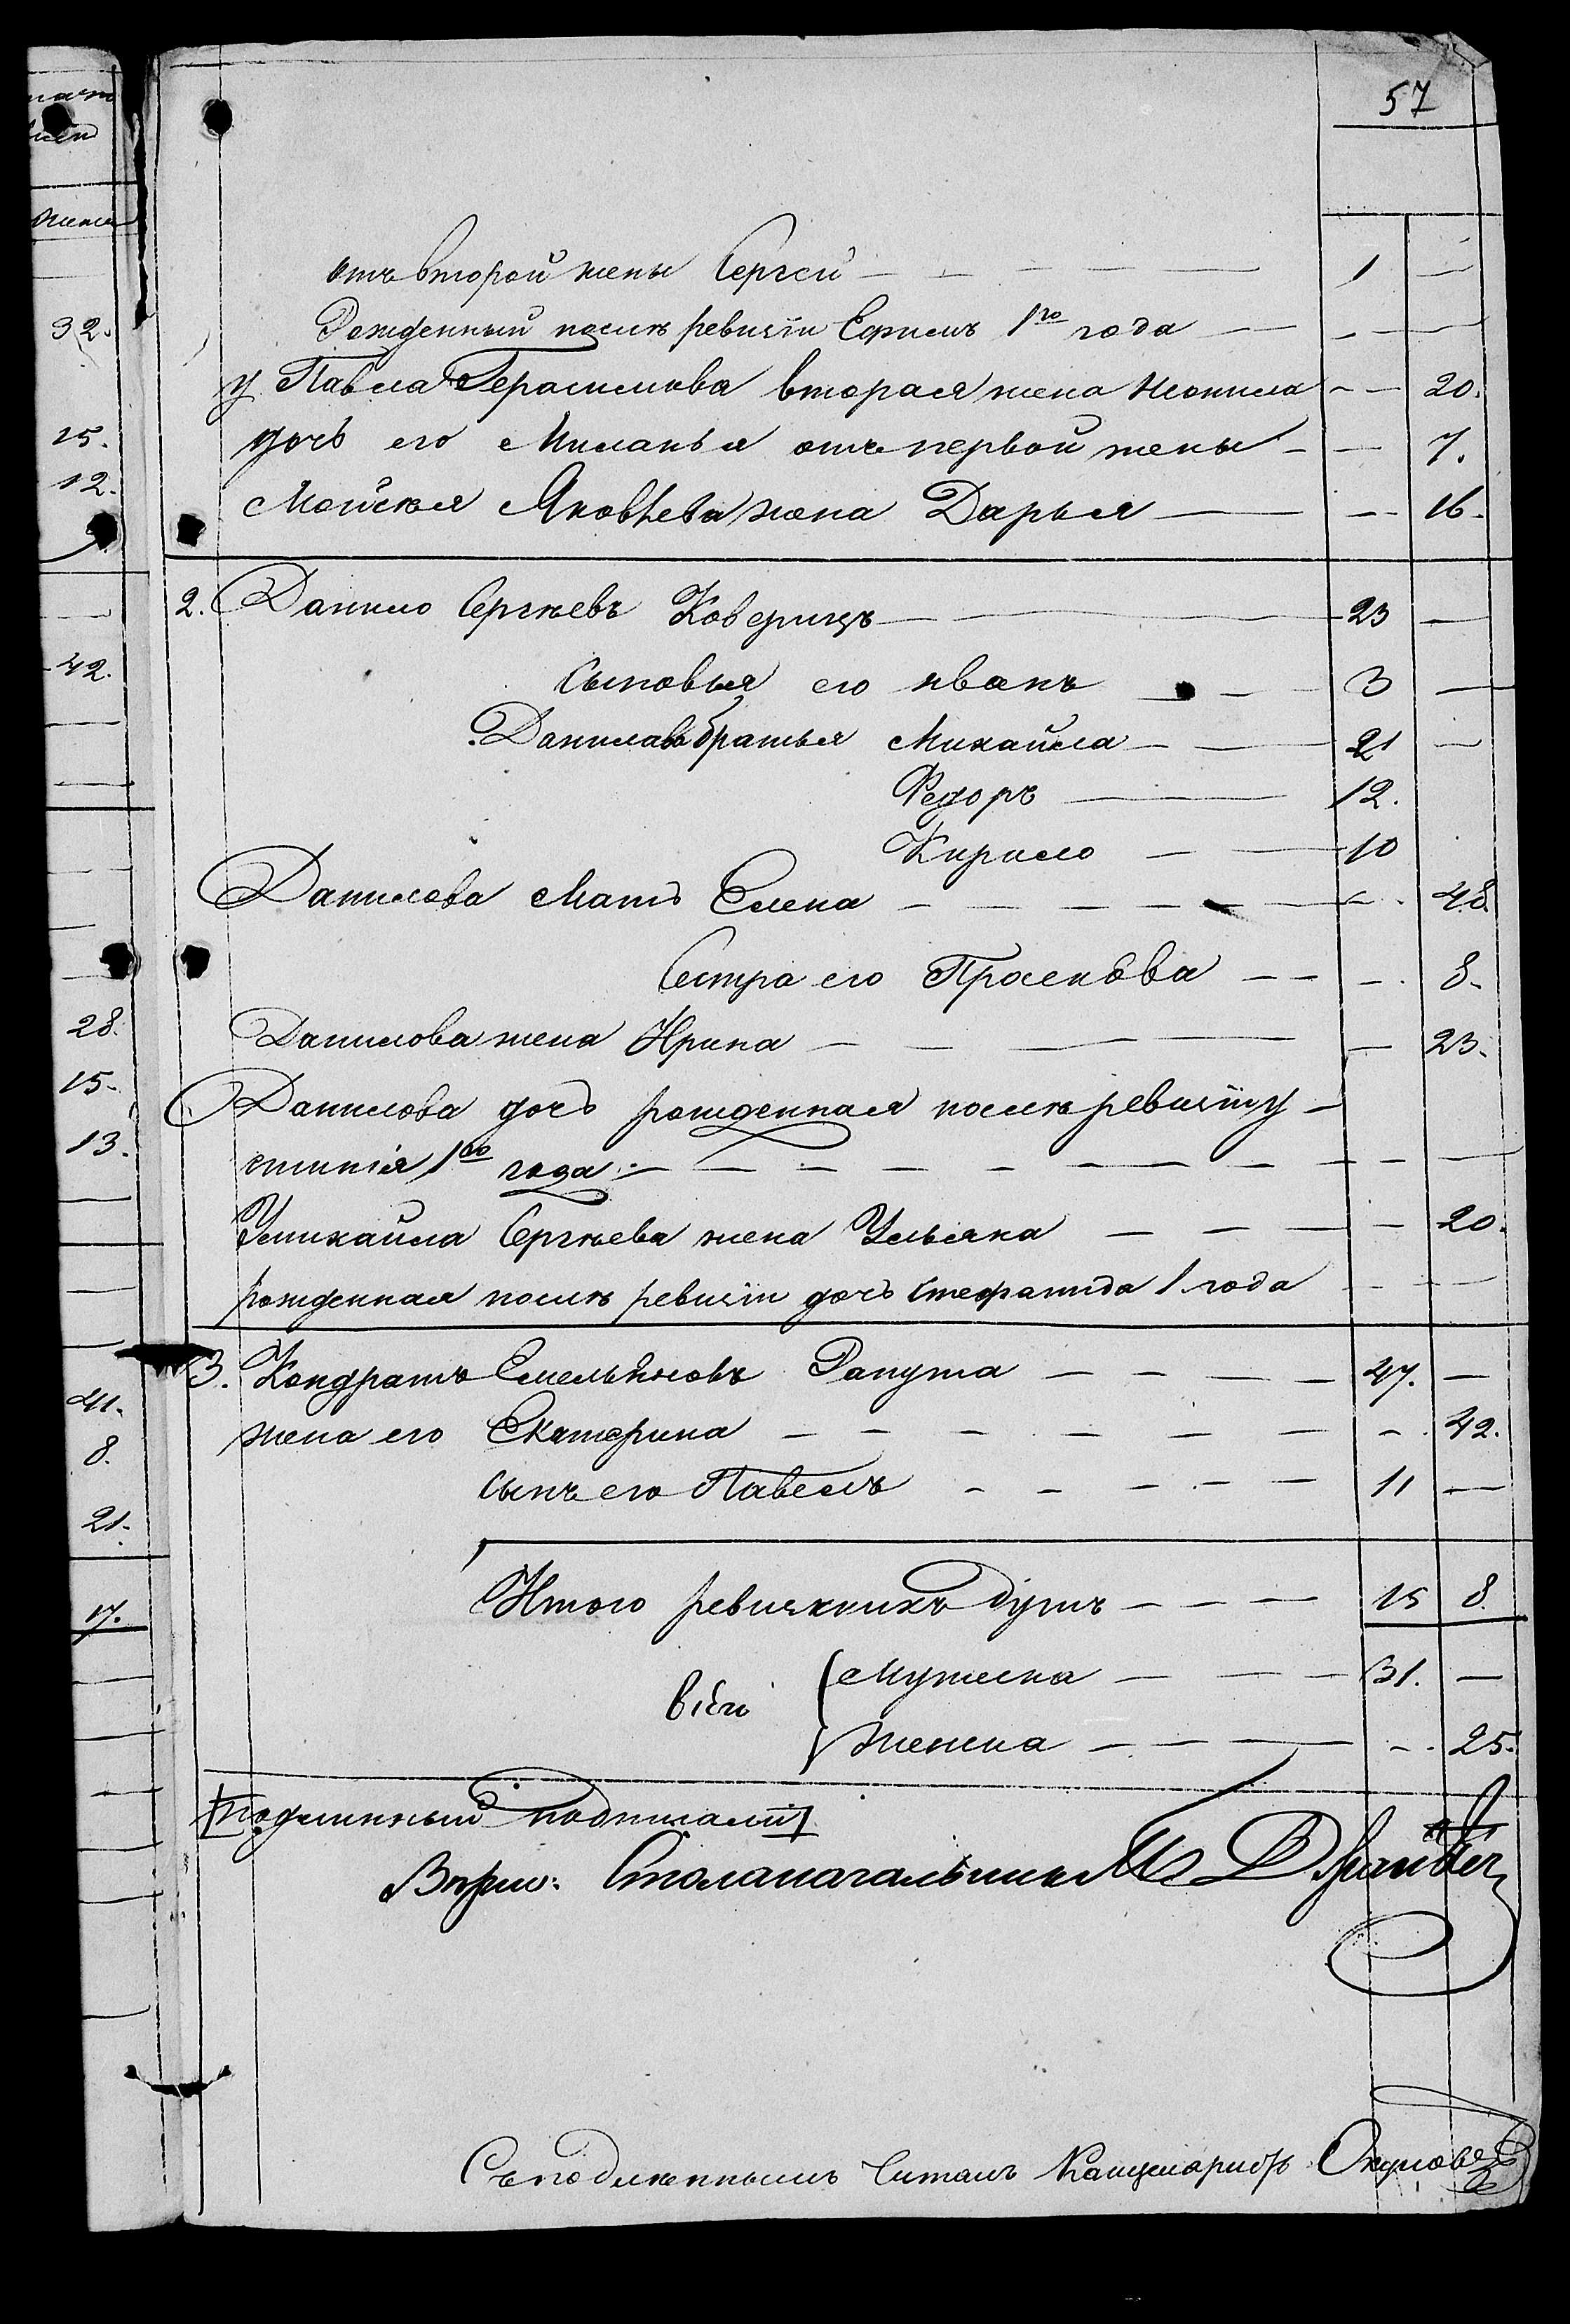 57
отъ второй жены Сергей — 1 —
Рожденный послѣ ревизіи Ефимъ 1го года — — —
у Павла Герасимова вторая жена Неонила — 20.
дочь его Миланья отъ первой жены — 7.
Мойсѣя Яковлева жена Дарья — 16.
2. Данило Сергѣевъ Коверицъ — 23 —
Сыновья его иванъ — 3 —
Данилова братья Михайла — 21 —
Федоръ — 12.
Кирило — 10
Данилова Мать Елена — 48.
Сестра его Просковья — 8.
Данилова жена Ирина — 23.
Данилова дочь рожденная послѣ ревизіи у
стинія 1го года — —
У михайла Сергѣева жена Ульяна — 20.
рожденная послѣ ревизіи дочь Стефанида 1 года — —
3. Кондратъ Емельяновъ Рапута — 47. —
жена его Екатерина — 42.
сынъ его Павелъ — 11 —
Итого ревизкихъ душъ — 15 8
всѣхъ
Мужеска — 31. —
Женска — 25.
Подлинный подписали
Вѣрно: Столоначальникъ
Съ подлиннымъ Читалъ Канцеляристъ
32.
15.
12.
42.
28.
15.
13.
41.
8.
21.
17.